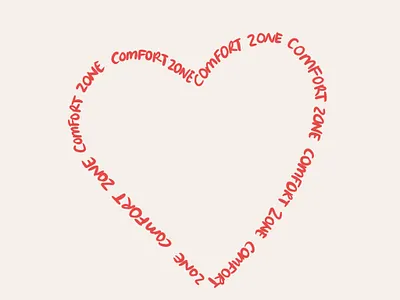 COMFORT ZONE
COMFORT ZONE
COMFORT ZONE
COMFORT ZONE
COMFORT ZONE
COMFORT ZONE
COMFORT ZONE